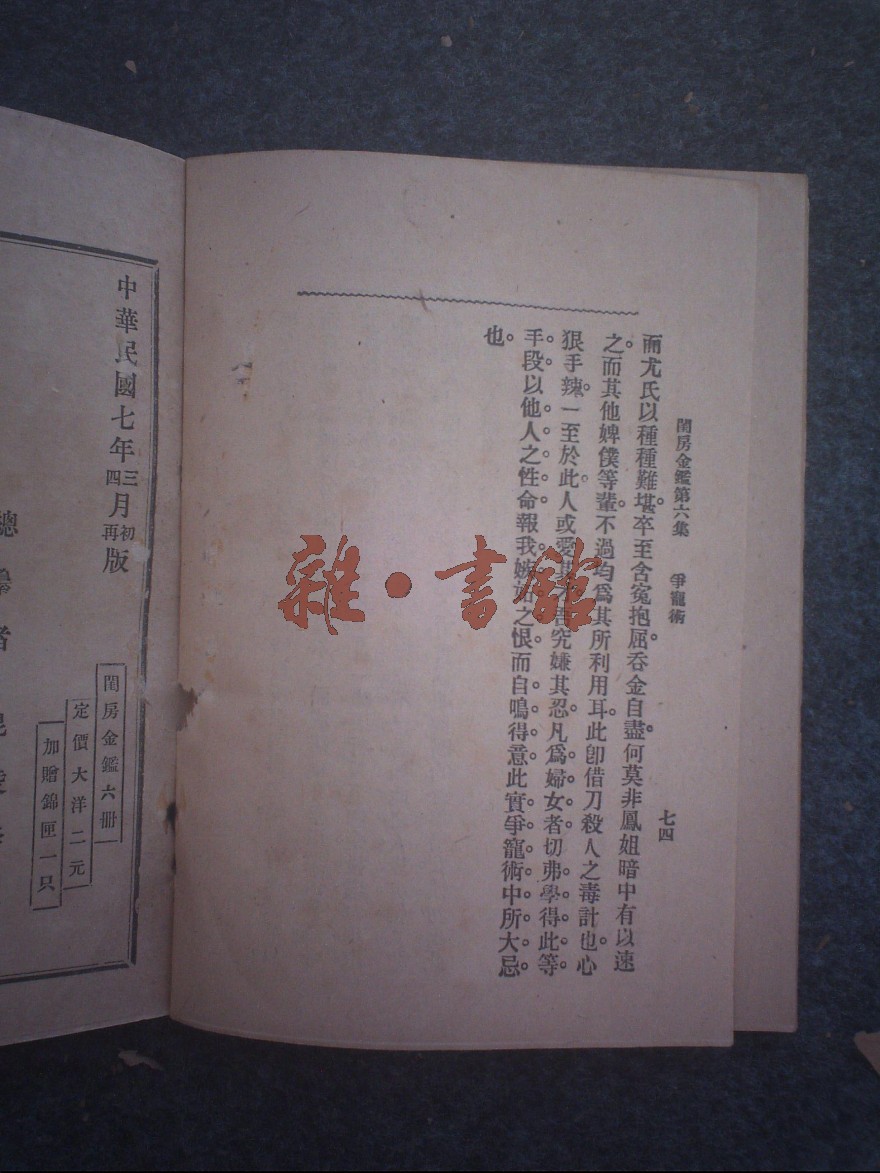 閨房金鑑第六集　爭寵術
七四
而尤氏以種種難堪。卒至含寃抱屈。吞金自盡。何莫非鳳姐暗中有以速
之。而其他婢僕等輩。不過均爲其所利用耳。此卽借刀殺人之毒計也。心
狠手辣。一至於此。人或愛其才。吾究嫌其忍。凡爲婦女者。切弗學得此等
手段。以他人之性命。報我嫉妬之恨。而自鳴得意。此實爭寵術中所大忌
也。
中華民國七年三月初版
四 再
總纂者
閨房金鑑六册
定價大洋二元
加贈錦匣一只
雜·書館